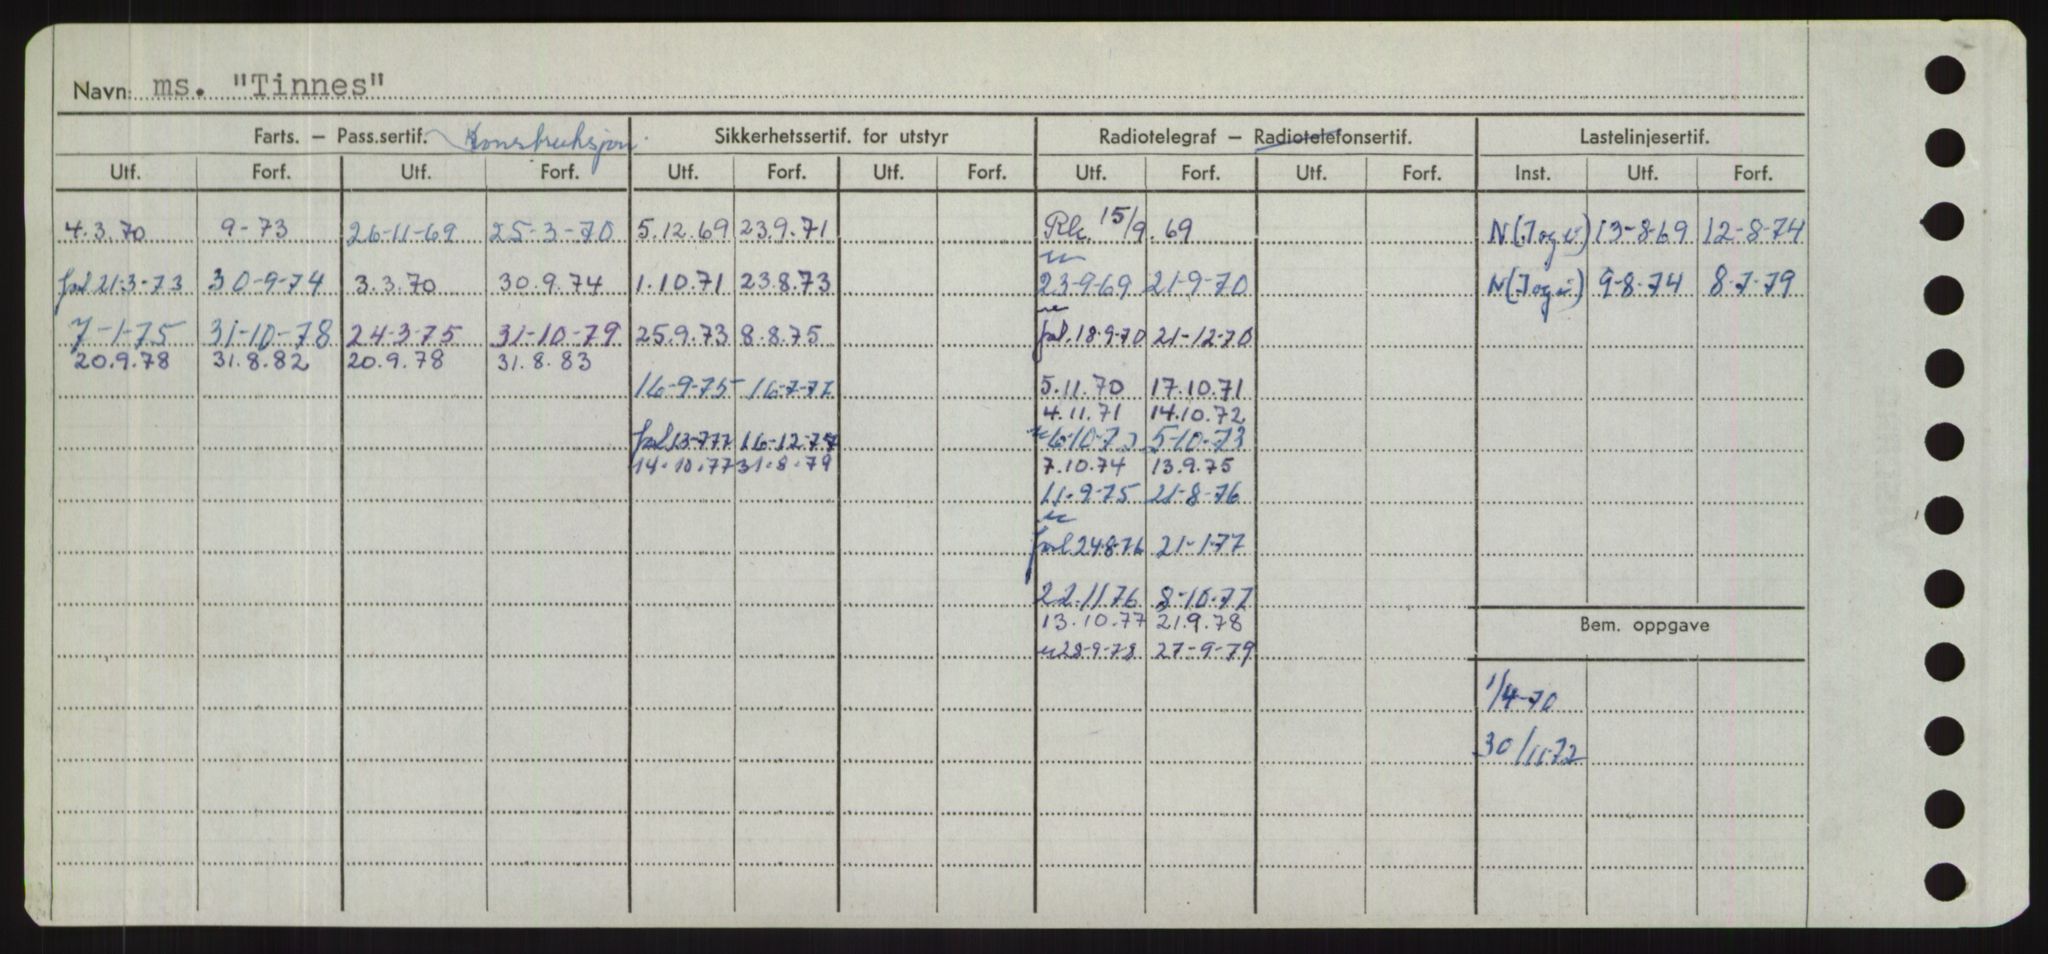 Navn: ms. "Tinnes"
Farts. — Pass.sertif. Konstruksjon. Sikkerhetssertif. for utstyr Radiotelegraf — Radiotelefonsertif. Lastelinjesertif.
Utf. Forf. Utf. Forf. Utf. Forf. Utf. Forf. Utf. Forf. Utf. Forf. Inst. Utf. Forf.
4.3.70 9-73 26-11-69 25-3-70 5.12.69 23.9.71 15/9.69 N(Jog v) 13-8-69 12-8-74
forl 21-3-73 30-9-74 3.3.70 30.9.74 1.10.71 23.8.73 23-9-69 21-9-70 N(Jog v) 9-8-74 8-7-79
7-1-75 31-10-78 24-3-75 31-10-79 25.9.73 8.8.75 forl. 18-9-70 21-12-70
20.9.78 31.8.82 20.9.78 31.8.83
16-9-75 16-7-77 5.11.70 17.10.71
4.11.71 14.10.72
forl 13-7-77 16-12-77 5-10-73
14.10.77 31.8.79 7.10.74 13.9.75
11-9-75 21-8-76
forl 24-8-76 21-1-77
22.11.76 8-10-77
13.10.77 21.9.78
Bem. oppgave
28-9-78 27-9-79
1/4-70
30/11-72